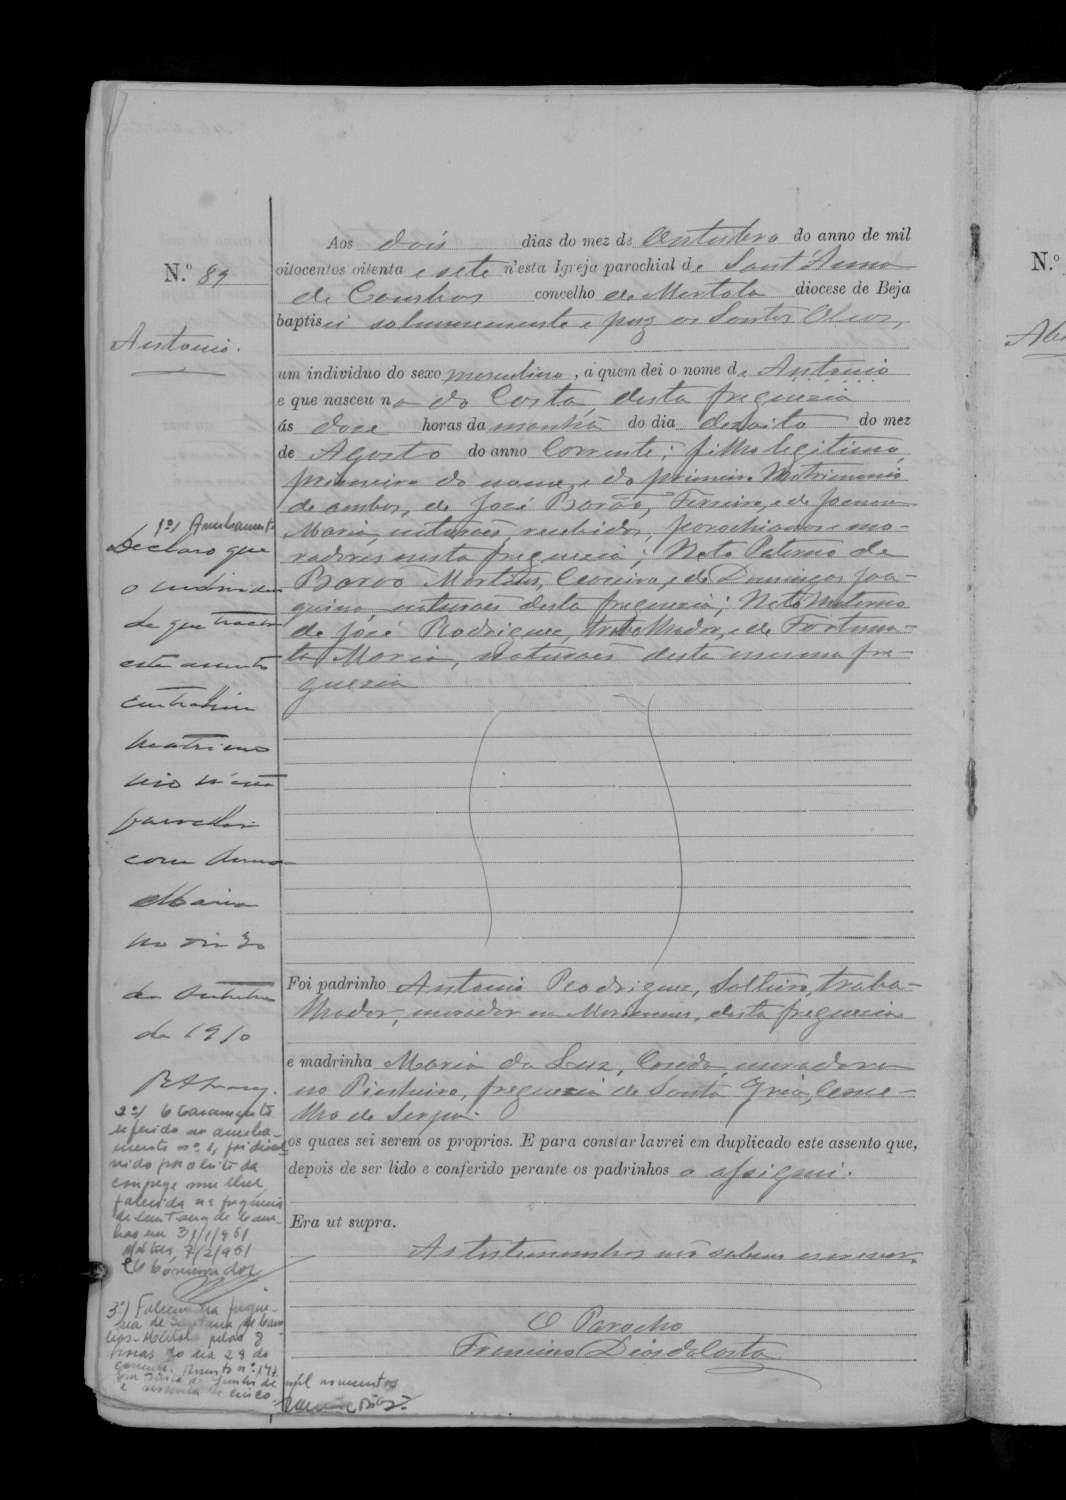 N.º 89
Antonio.
Aos dois dias do mez de Outubro do anno de mil
oitocentos oitenta e sete n'esta Igreja parochial de Sant'Anna
de Cambas concelho de Mertola diocese de Beja
baptisei solemnemente e puz os Santos Oleos,
um individuo do sexo masculino, a quem dei o nome de Antonio
e que nasceu n do Costa, desta freguezia
ás doze horas da manhã do dia dezoito do mez
de Agosto do anno Corrente; filho legitimo
primeiro do nome, e do primeiro Matrimonio
de ambos, de José Barão, Ferreiro, e de Joanna
Maria, naturaes, recebidos, parochianos e mo-
radores nesta freguezia; Neto Paterno de
Barão Martins, e de Domingas Joa-
quina, naturaes desta freguezia; Neto Materno
de José Rodrigues, trabalhador, e de Fortuna-
ta Maria, naturaes desta mesma fre-
guezia
Foi padrinho Antonio Rodrigues, Solteiro, traba-
lhador, morador em desta freguezia
e madrinha Maria da Luz, Casada, moradora
no Pinheiro, freguezia de Santa Iria, Conce-
lho de Serpa.
os quaes sei serem os proprios. E para constar lavrei em duplicado este assento que,
depois de ser lido e conferido perante os padrinhos o assignei.
Era ut supra.
As testemunhas não sabem escrever.
O Parocho
Francisco Dias da Costa
1º) Averbamento
Declaro que
o individuo
de que trata
este assento
contrahiu
matrimo
nio n'esta
parochia
com Anna
Maria
no dia 30
de Outubro
de 1910
2º) O casamento
referido no averba-
mento nº 1, foi dissol
vido por obito da
conjuge mulher,
falecida na freguesia
de Santana de Cam-
bas em 31/1/951
Mértola, 7/2/951
O Conservador
3º) Faleceu na fregue-
sia de Santana de Cam
bas-Mértola pelas 8
horas do dia 28 do
corrente. Assento nº
de Junho de
e sessenta e cinco